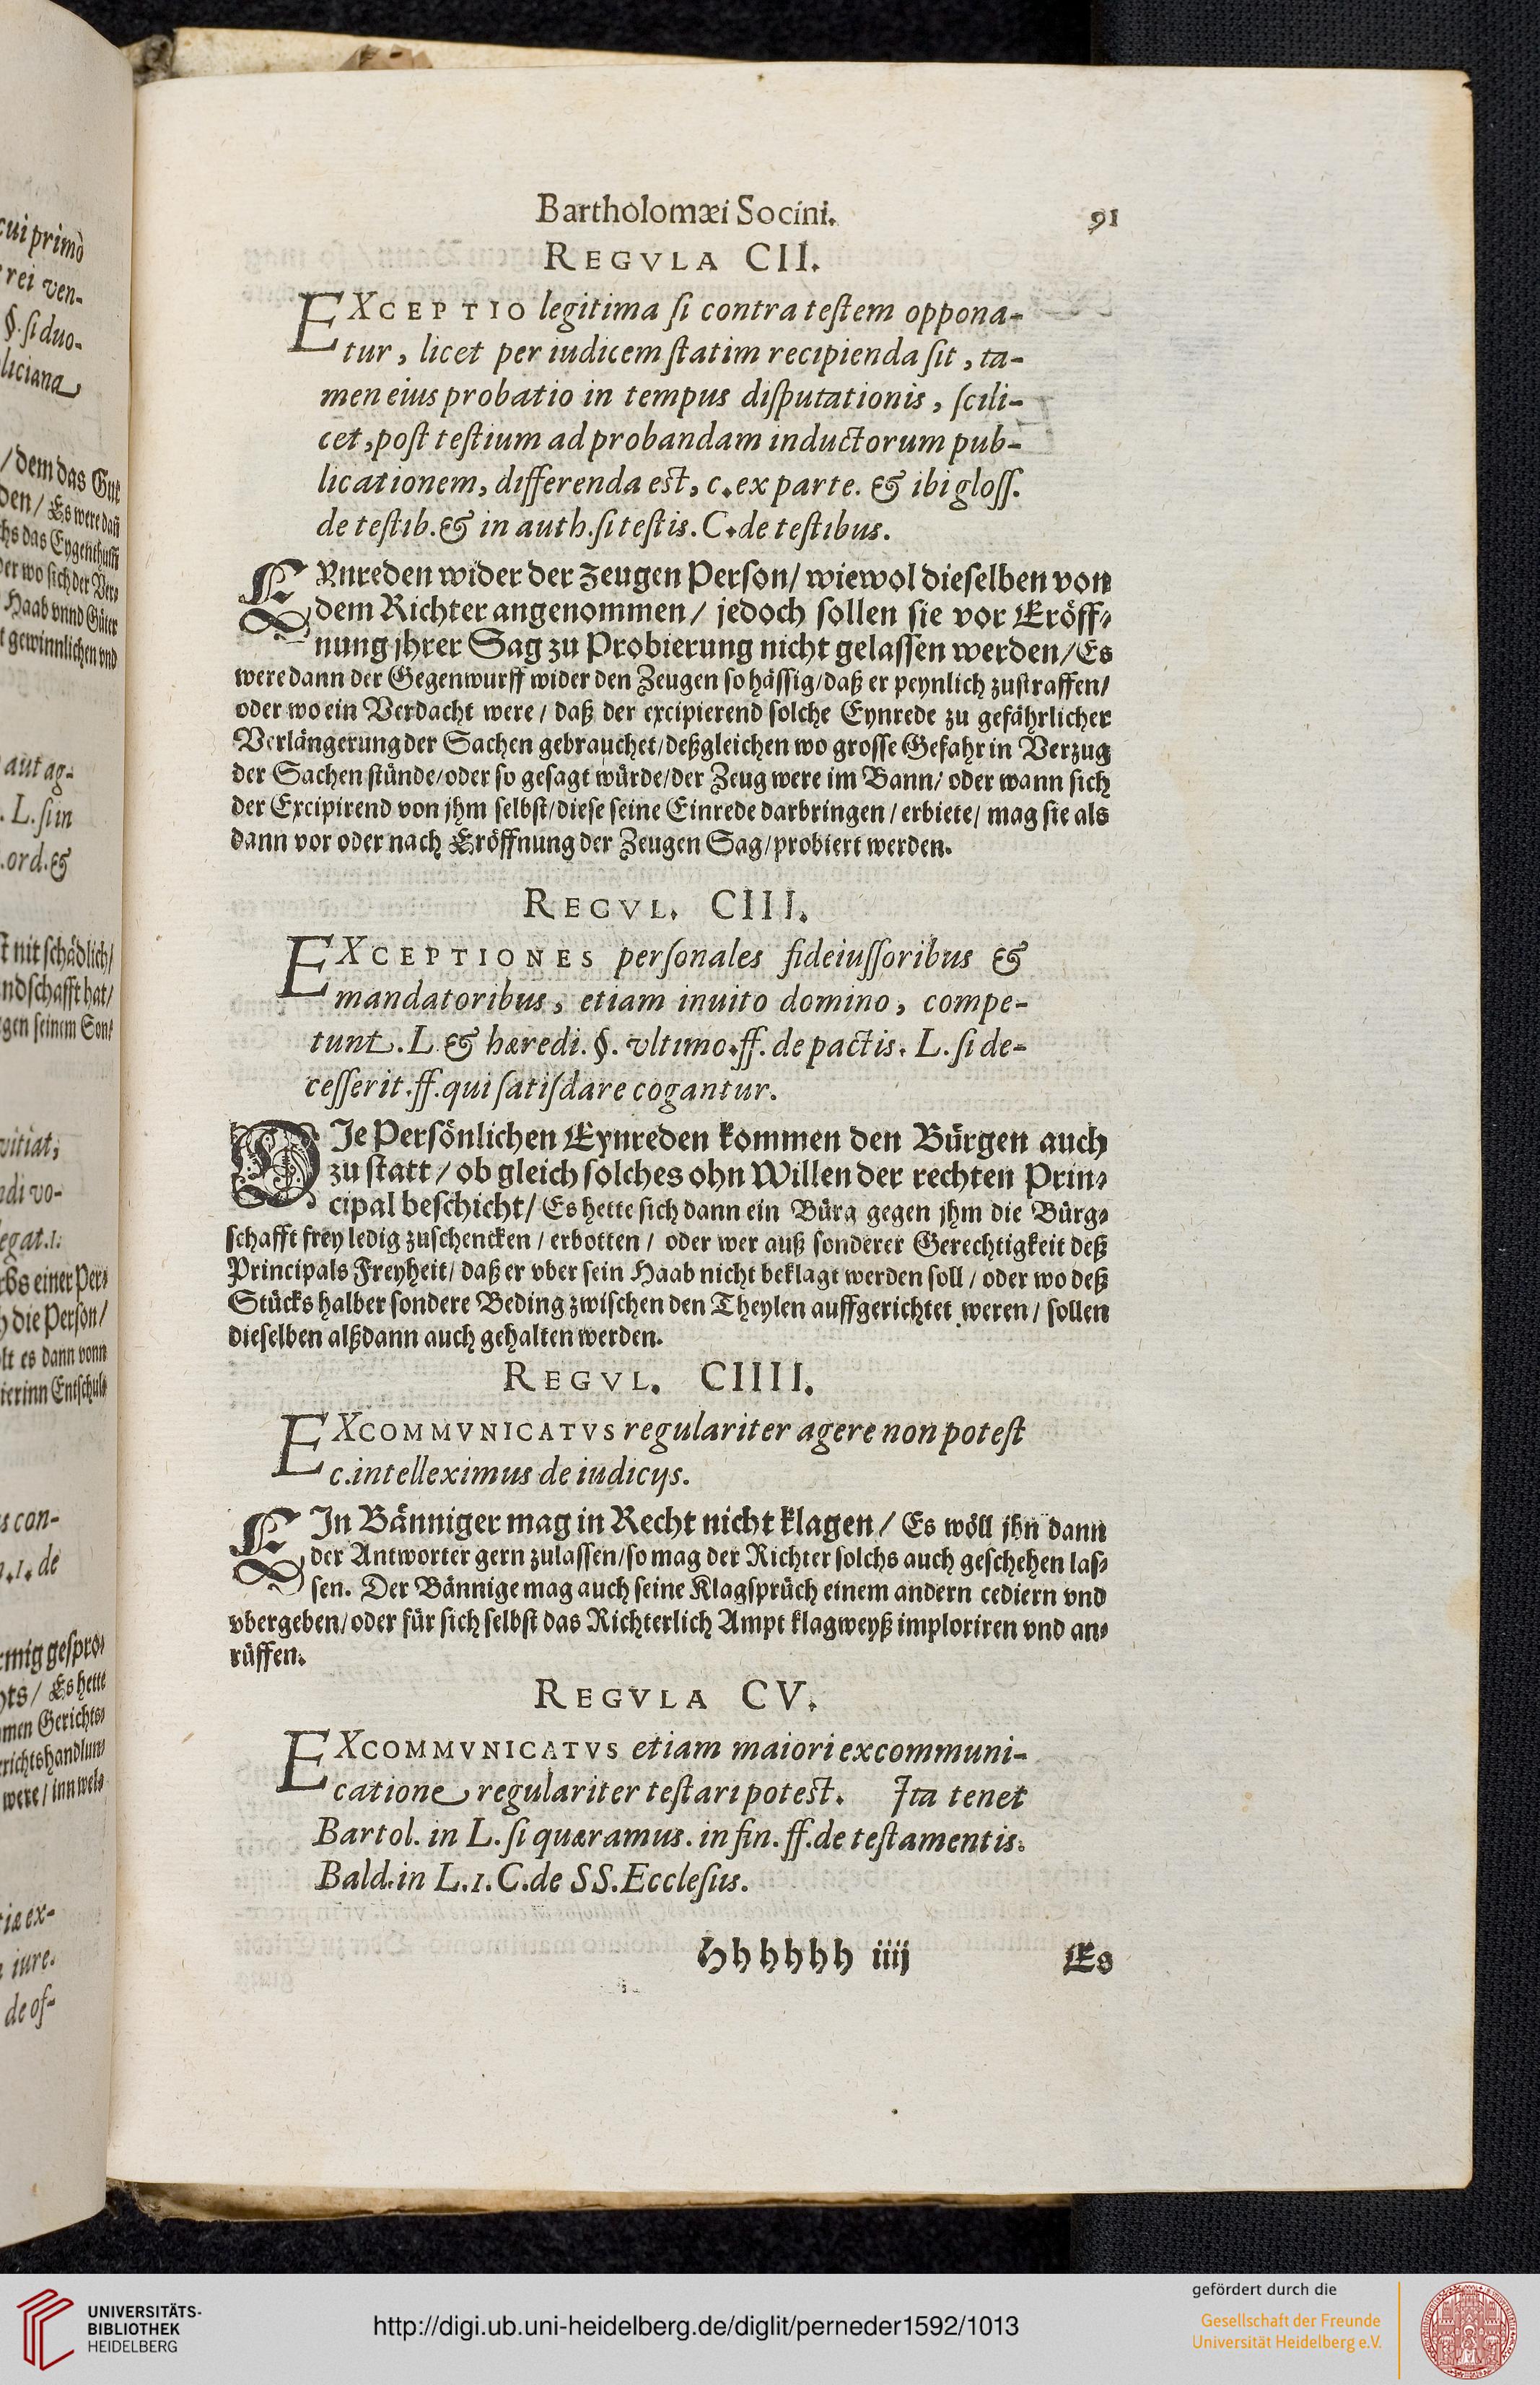 cui primò
rei ven-
§. si duo-
liciana
/ dem das Gut
den / Es were dañ
chs das Eygenthuṁ
der wo sich der Ver-
Haab vnnd Güter
gewinnlichen vnd
aut ag-
. L. si in
.ord. &
nit schädlich/
ndschafft hat/
gen seinem Son-
vitiat,
adi vo-
egat. 1.
bs einer Per-
die Person/
lt es dann vonn
ierinn Entschul-
s con-
.1. de
rmig gespro-
hts / Es hette
men Gerichts-
richtshandlun-
were / inn wel-
iæ ex-
iure.
de of-
Bartholomæi Socini. 91
REGVLA CII.
EXCEPTIO legitima ſi contra teſtem oppona-
tur, licet per iudicem ſtatim recipienda ſit, ta-
men eius probatio in tempus diſputationis, ſcili-
cet, poſt teſtium ad probandam inductorum pub-
licationem, differenda eſt, c. ex parte. & ibi gloſſ.
de teſtib. & in auth. ſi teſtis. C. de teſtibus.
EYnreden wider der Zeugen Person/ wiewol dieselben von
dem Richter angenommen/ jedoch sollen sie vor Eröff-
nung jhrer Sag zu Probierung nicht gelassen werden/ Es
were dann der Gegenwurff wider den Zeugen so hässig/ daß er peynlich zustraffen/
oder wo ein Verdacht were / daß der excipierend solche Eynrede zu gefährlicher
Verlängerung der Sachen gebrauchet/ deßgleichen wo grosse Gefahr in Verzug
der Sachen stünde/ oder so gesagt würde/ der Zeug were im Bann/ oder wann sich
der Excipirend von jhm selbst/ diese seine Einrede darbringen / erbiete/ mag sie als
dann vor oder nach Eröffnung der Zeugen Sag/ probiert werden.
REGVL. CIII.
EXCEPTIONES perſonales fideiuſſoribus &
mandatoribus, etiam inuito domino, compe-
tunt. L & hæredi. §. vltimo. ff. de pactis. L. ſi de-
ceſſerit. ff. qui ſatiſdare cogantur.
DIe Persönlichen Eynreden kommen den Bürgen auch
zu statt / ob gleich solches ohn Willen der rechten Prin-
cipal beschicht/ Es hette sich dann ein Bürg gegen jhm die Bürg-
schafft frey ledig zuschencken / erbotten / oder wer auß sonderer Gerechtigkeit deß
Principals Freyheit/ daß er vber sein Haab nicht beklagt werden soll / oder wo deß
Stücks halber sondere Beding zwischen den Theylen auffgerichtet weren / sollen
dieselben alßdann auch gehalten werden.
REGVL. CIIII.
EXCOMMVNICATVS regulariter agere non poteſt
c. intelleximus de iudicijs.
EIn Bänniger mag in Recht nicht klagen / Es wöll jhn dann
der Antworter gern zulassen/ so mag der Richter solchs auch geschehen las-
sen. Der Bännige mag auch seine Klagsprüch einem andern cediern vnd
vbergeben/ oder für sich selbst das Richterlich Ampt klagweyß imploriren vnd an-
rüffen.
REGVLA CV.
EXCOMMVNICATVS etiam maiori excommuni-
catione regulariter teſtari poteſt. Ita tenet
Bartol. in L. ſi quæramus. in fin. ff. de teſtamentis.
Bald. in L. 1. C. de SS. Eccleſiis.
Hhhhhh iiij Es
UNIVERSITÄTS-
BIBLIOTHEK
HEIDELBERG
http://digi.ub.uni-heidelberg.de/diglit/perneder1592/1013
gefördert durch die
Gesellschaft der Freunde
Universität Heidelberg e.V.